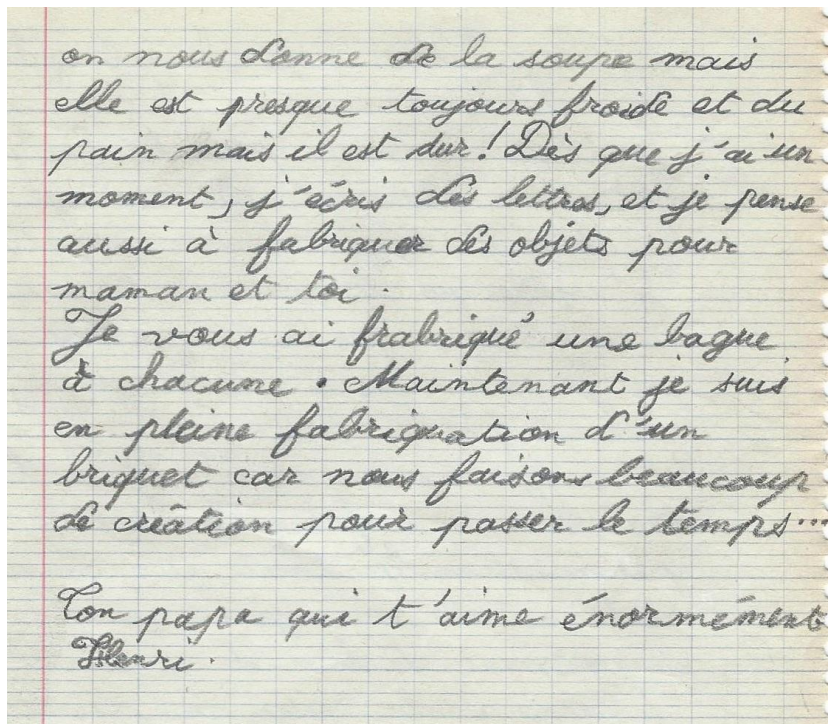 on nous donne de la soupe mais
elle est presque toujours froide et du
pain mais il est dur ! Dès que j'ai un
moment, j'écris des lettres, et je pense
aussi à fabriquer des objets pour
maman et toi.
Je vous ai frabriqué une bague
à chacune. Maintenant je suis
en pleine fabriquation d'un
briquet car nous faisons beaucoup
de création pour passer le temps...
Ton papa qui t'aime énormément
Henri.